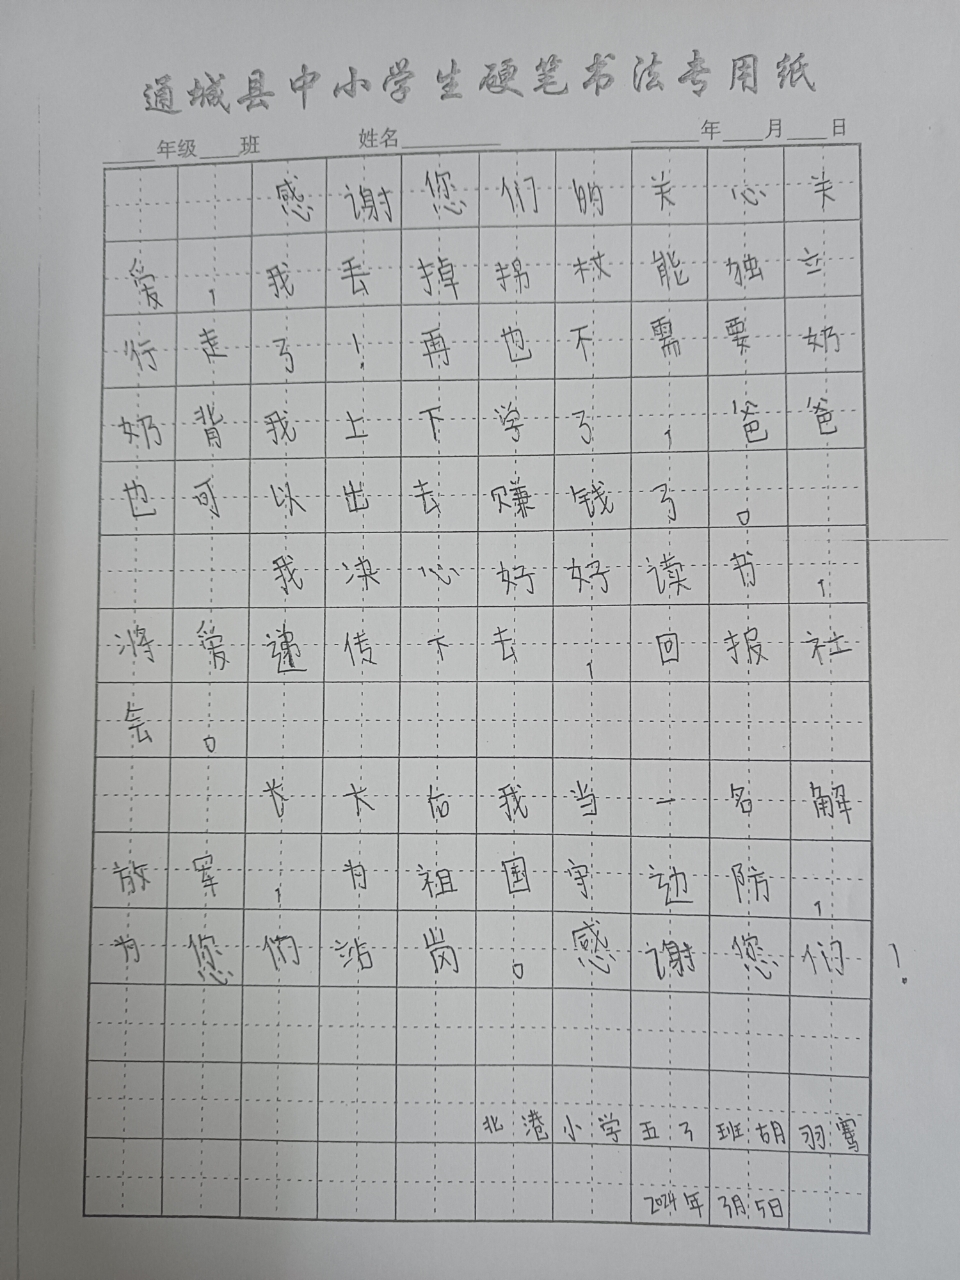 通城县中小学生硬笔书法专用纸
年级 班 姓名 年 月 日
感谢您们的关心关
爱，我丢掉拐杖能独立
行走了！再也不需要奶
奶背我上下学了，爸爸
也可以出去赚钱了。
我决心好好读书，
将爱递传下去，回报社
会。
长大后我当一名解
放军，为祖国守边防，
为您们站岗。感谢您们！
北港小学五3班胡羽骞
2024年3月5日